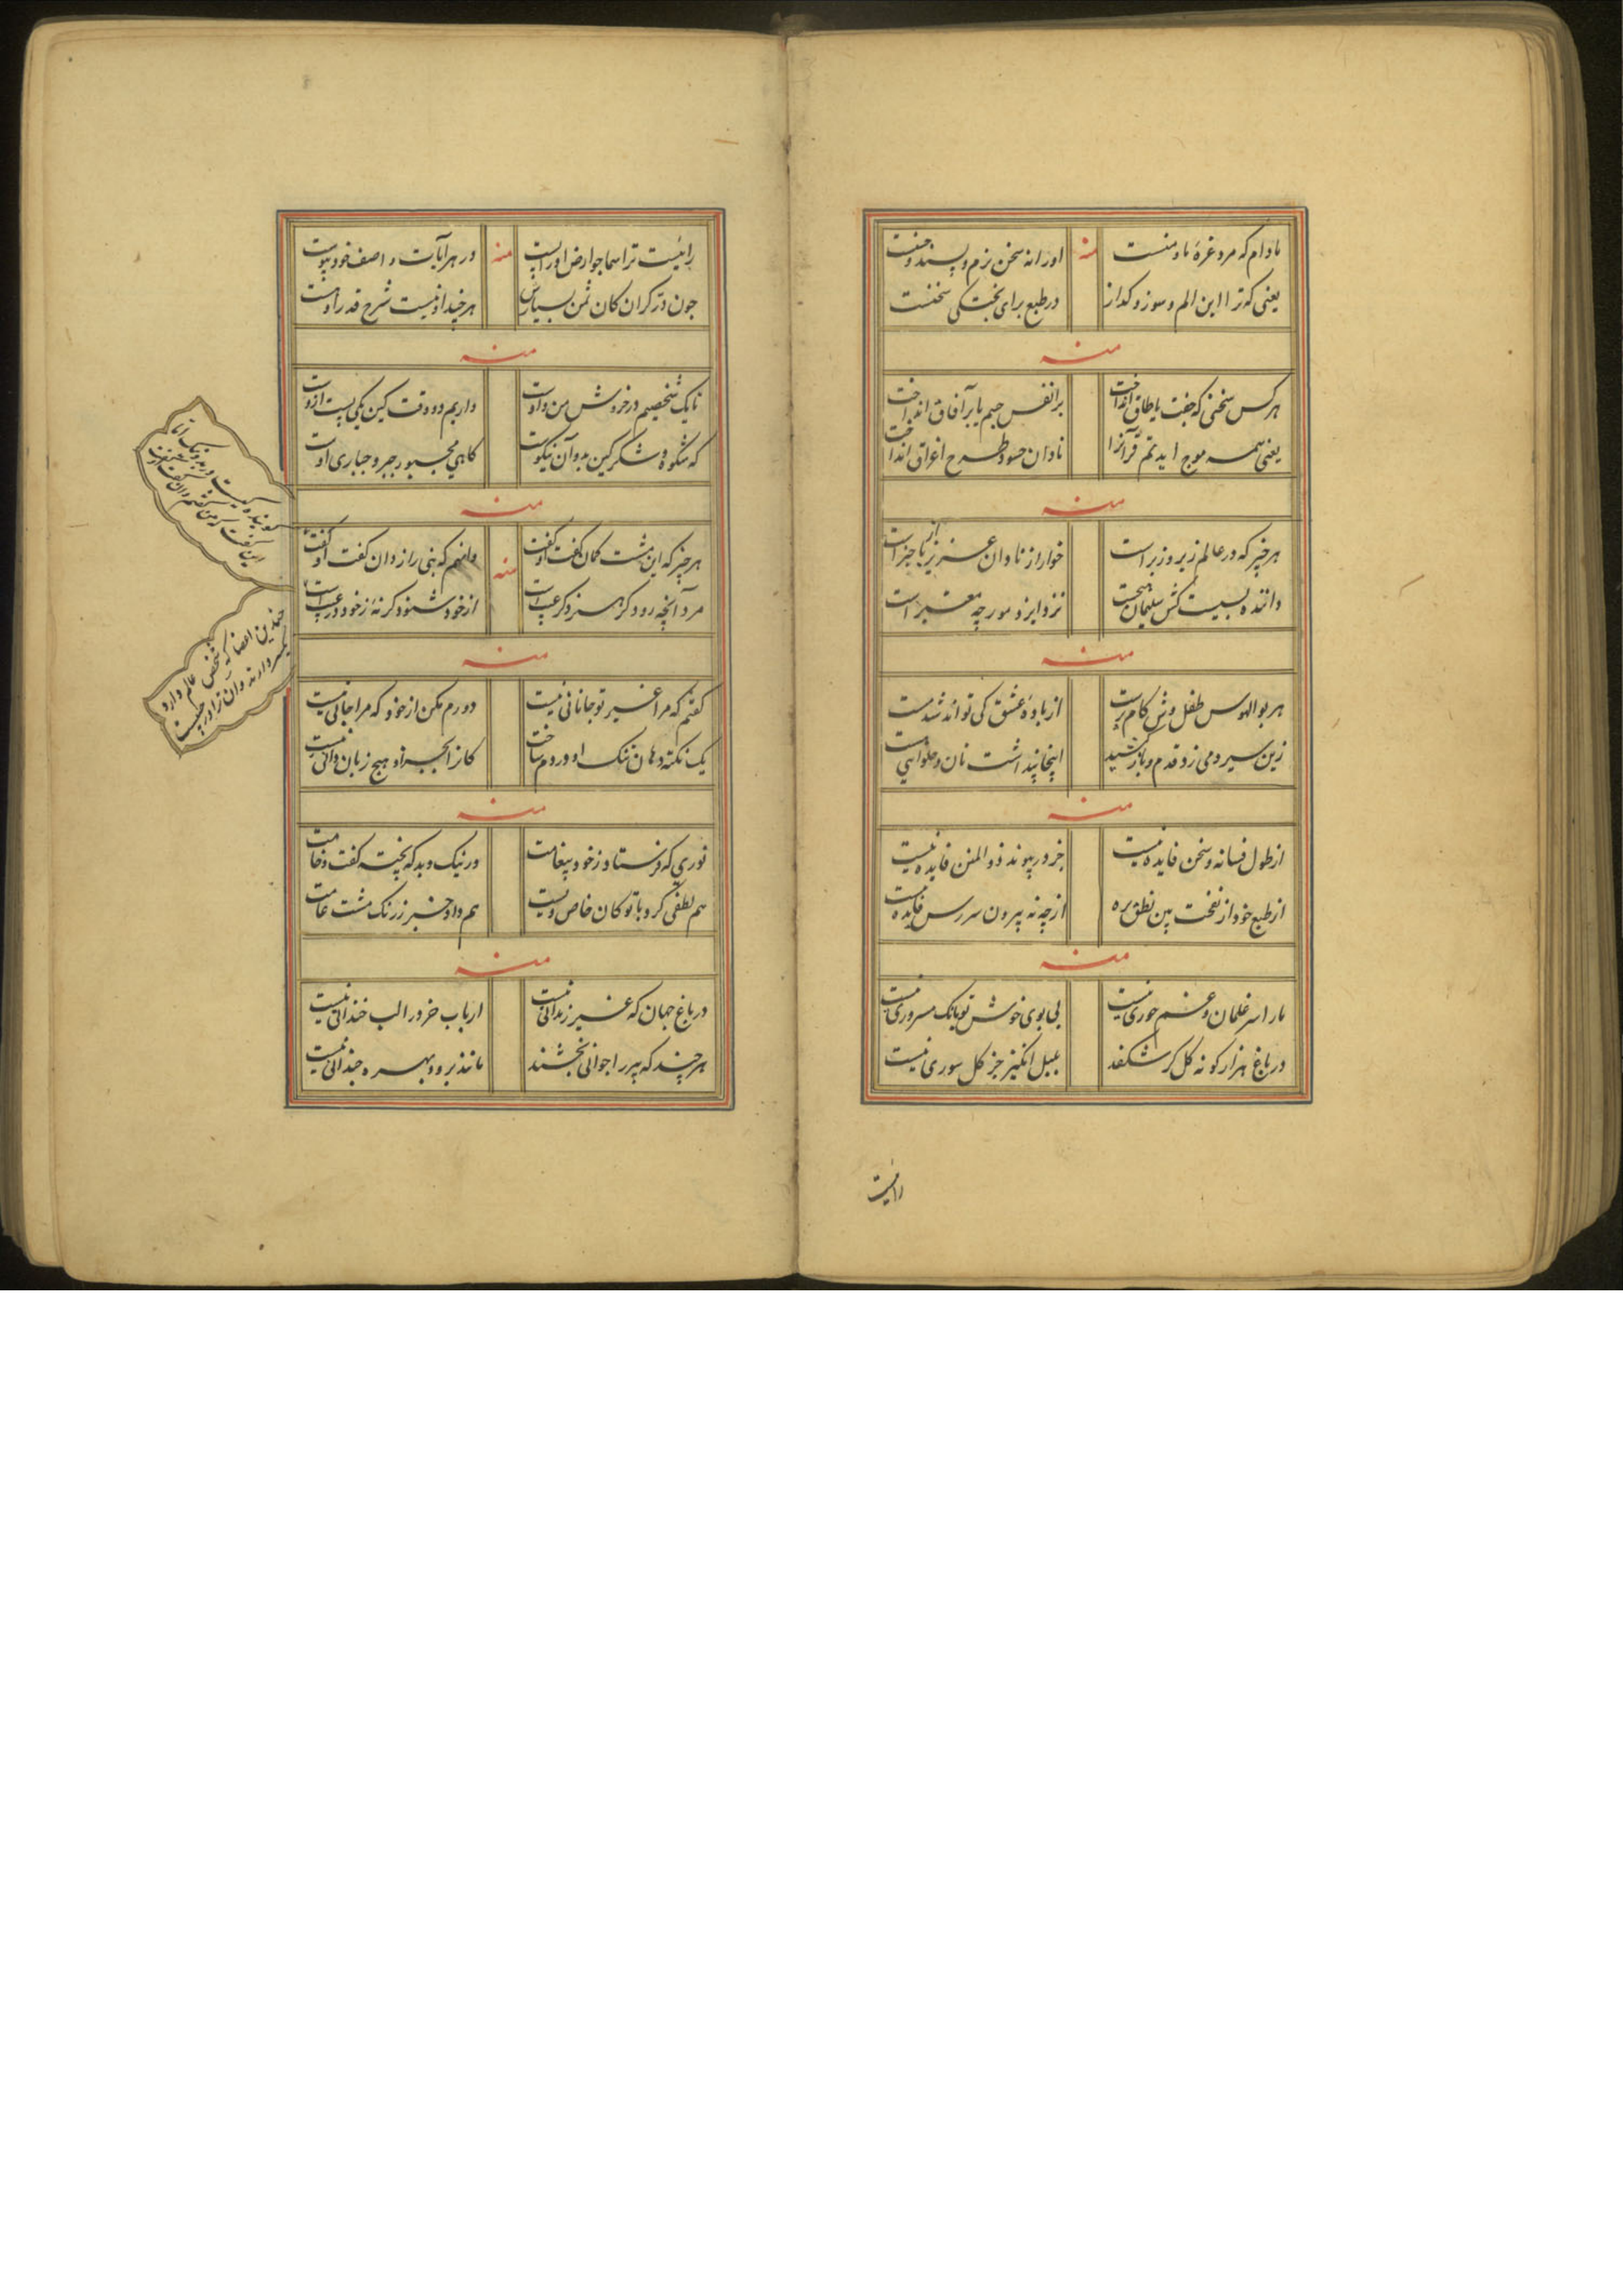 مادام که مرد غرهٔ ما و منست
منه
او را نه سخن نرم و پسند و حسنت
یعنی که ترا این الم و سوز و کداز
در طبع برای پختکی سخنت
منه
هر کس سخنی که جفت یا طاق انداخت
بر انفس جسم یا بر آفاق انداخت
یعنی همه موج
نادان حسود طرح اغراق انداخت
منه
هر چیز که در عالم زیر و زبر است
خوار از نادان عزیز با خبر است
داننده
نزد ایزد مورچه معتبر است
منه
هر بوالهوس طفل وش کام پرست
از بادهٔ عشق کی تواند شد مست
زین سیر و می زد قدم و باز کشید
اینجا پنداشت نان و حلوایی هست
منه
از طول فسانه و سخن فایده نیست
جز در پیوند ذو المنن فایده نیست
از طبع خود از نفخت بین نطق بره
از چه نه بیرون سر رسن فایده نیست
منه
ما را سر غلمان و غم حوری نیست
بی بوی خوش تو بانک مسروری نیست
در باغ هزار کونه کل کر شکفد
بلبل انکیز جز کل سوری نیست
رانیست
رانیست ترا سما جو ارض او را پست
منه
در هر آیات و اصف خود پیوست
چون در کران کان ثمن بسیارش
هر چند از نیست شرح قدر او هست
منه
تا یک شخصیم در خروش من و اوست
داریم دو وقت کین یکی پست ازوست
که شکوه و شکر کین بد و آن نیکوست
کاهی مجبور جبر و جباری اوست
منه
هر چیز که این مشت کمان کفت او کفت
منه
دانم که بنی راز دان کفت او کفت
مرد آنچه رود کر هنر و کر عیب است
از خود شنود کر نه ز خود در عیب است
منه
کفتم که مرا غیر تو جانانی نیست
دورم مکن از خود که مرا جانی نیست
یک نکته دهان تنک او دردم ساخت
کانرا بجز او هیچ زبان دانی نیست
منه
نوری که فرستاد ز خود پیغامت
در نیک و بد که پخته کفت و خامت
هم لطفی کرد با تو کان خاص ویست
هم داد خبر ز رنک مشت عامت
منه
در باغ جهان که غیر زندانی نیست
ارباب خرد را لب خندانی نیست
هر چند که پیر را جوانی بخشند
مانند برو و بهره چندانی نیست
چندین اعضا که شخص عالم دارد